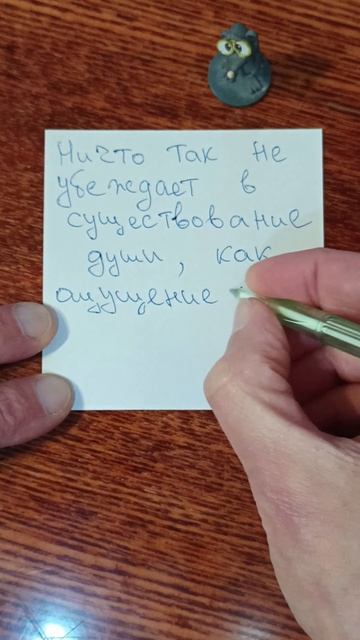 Ничто так не
убеждает в
существование
души, как
ощущение